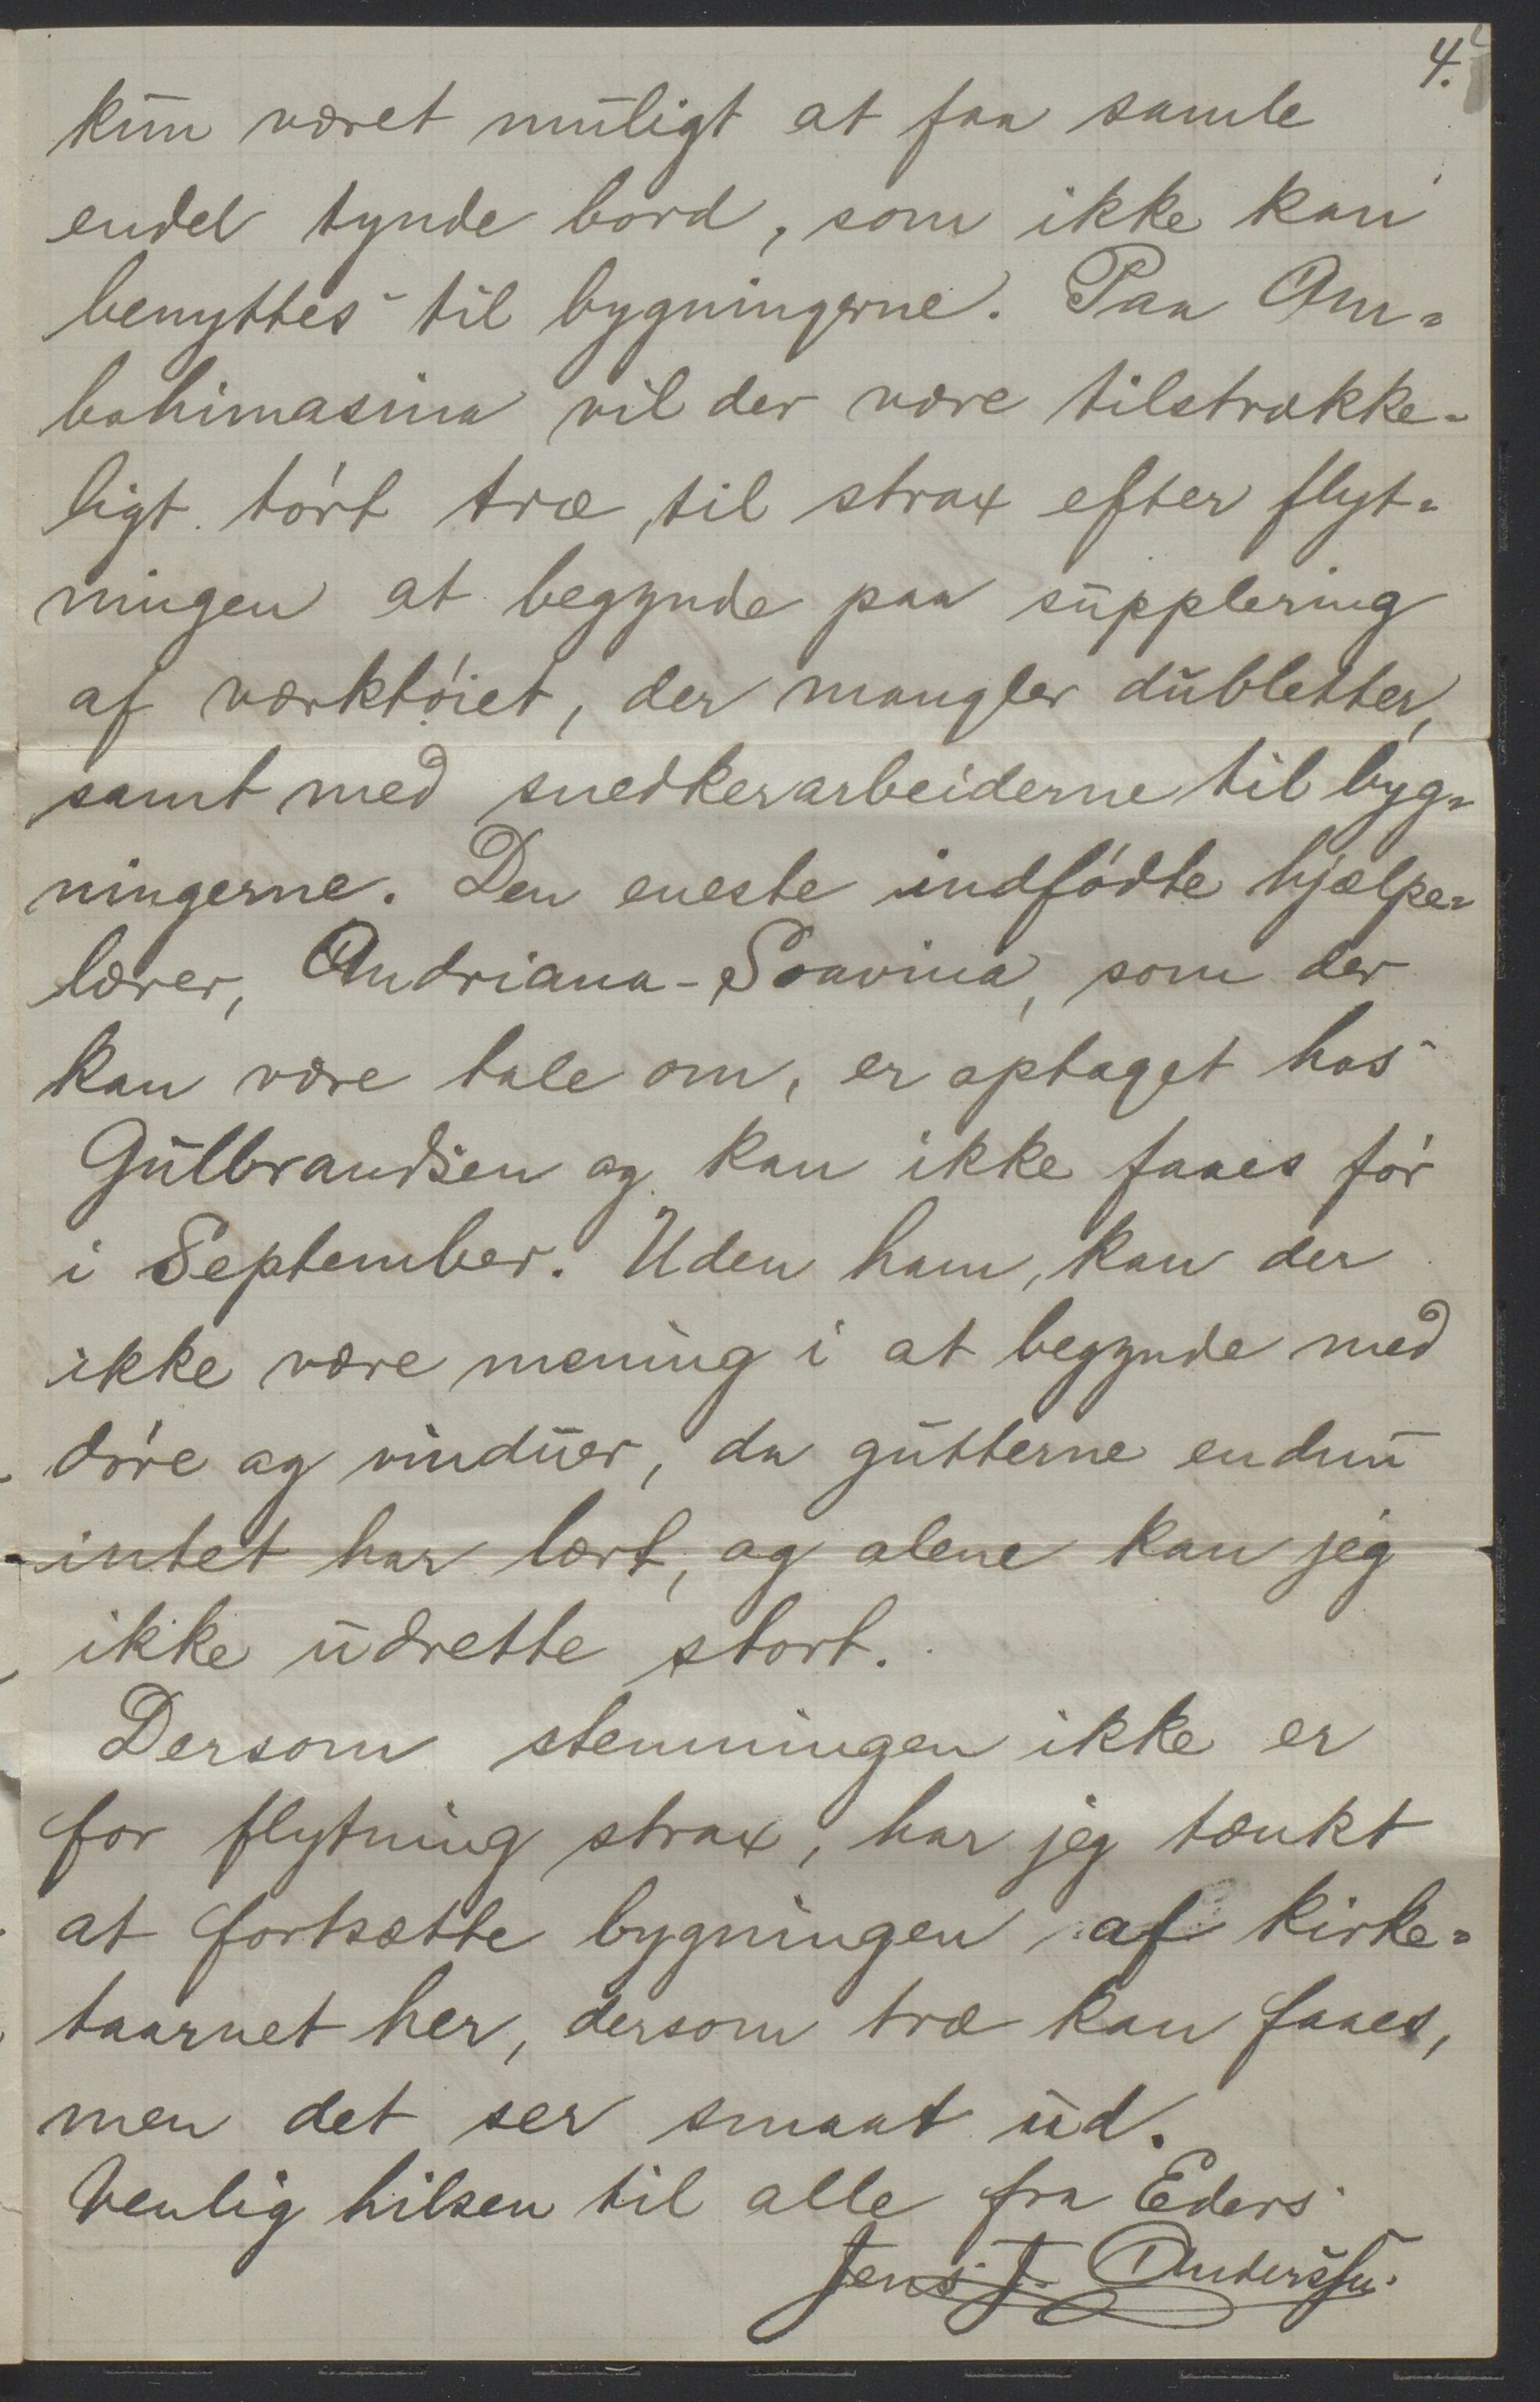 4.
kun været muligt at faa samle
endel tynde bord, som ikke kan
benyttes til bygningerne. Paa Am=
bohimasina vil der være tilstrække=
ligt tórt træ, til strax efter flyt=
ningen at begynde paa supplering
af værktóiet, der mangler dubletter,
samt med snedkerarbeiderne til byg=
ningerne. Den eneste indfódte hjælpe=
lærer, Andriana-Soavina, som der
kan være tale om, er optaget hos
Gulbrandsen og kan ikke faaes fór
i September. Uden ham, kan der
ikke være mening i at begynde med
dóre og vinduer, da gutterne endnu
intet har lært, og alene kan jeg
ikke udrette stort.
Dersom stemningen ikke er
for flytning strax, har jeg tænkt
at fortsætte bygningen af kirke=
taarnet her, dersom træ kan faaes,
men det ser smaat ud.
Venlig hilsen til alle fra Eders
Jens J. Anderssen.